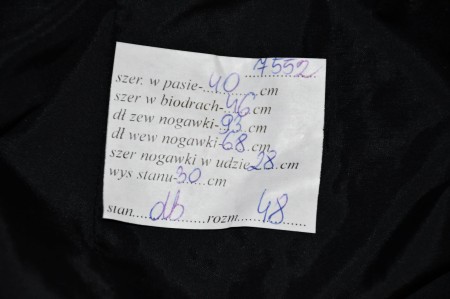 7552
szer. w pasie-40 cm
szer w biodrach-46 cm
dł zew nogawki-93 cm
dł wew nogawki-68 cm
szer nogawki w udzie 28 cm
wys stanu-30 cm
stan db rozm 48